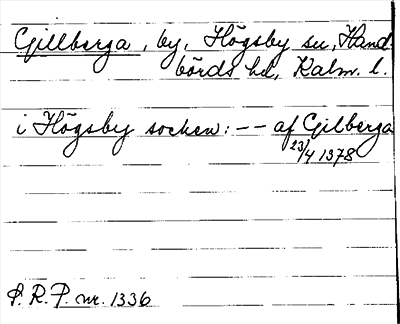 Gillberga, by, Högsby sn, Hand
börds hd, Kalm. l.
i Högsby socken: -- af Gilberga
23/4 1378
S. R. P. nr. 1336